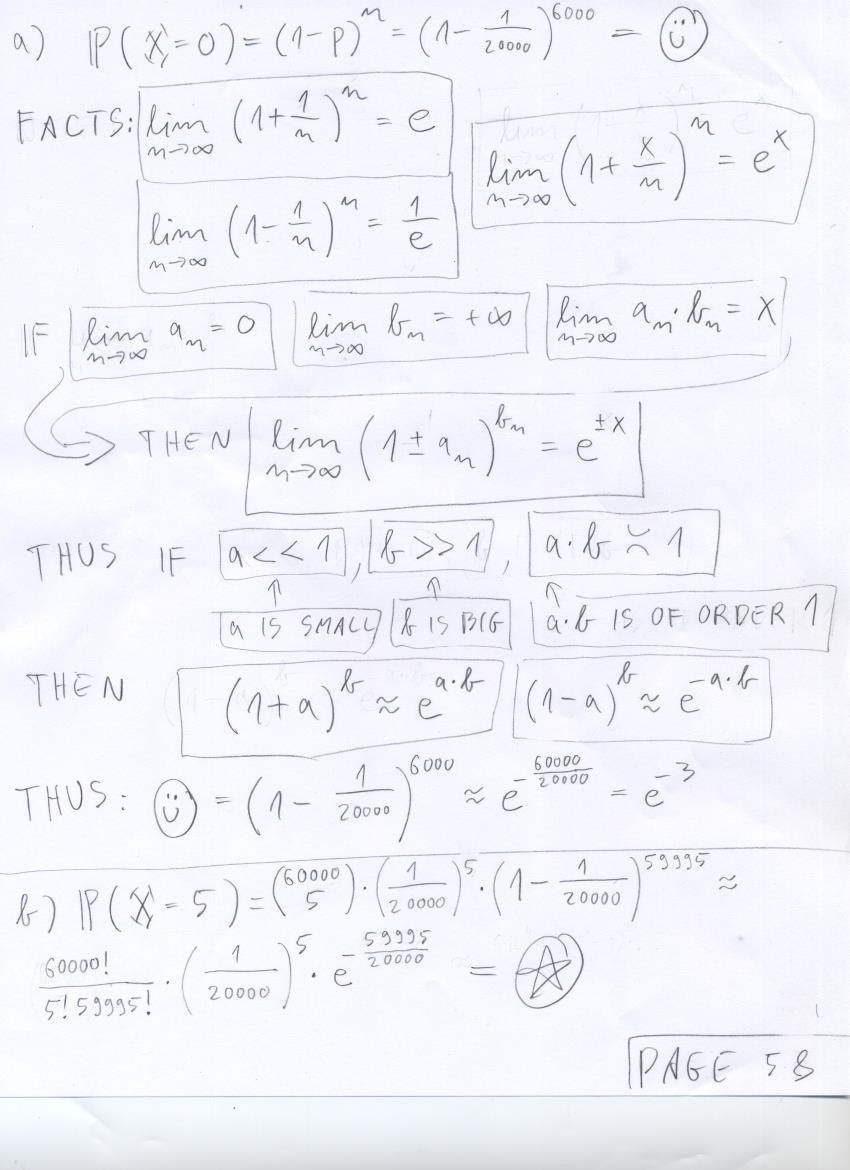 a) P(X=0) = (1-p)^n = (1 - 1/20000)^6000 = ☺
FACTS: lim n→∞ (1+1/n)^n = e
lim n→∞ (1+x/n)^n = e^x
lim n→∞ (1-1/n)^n = 1/e
IF lim n→∞ a_n = 0 lim n→∞ b_n = +∞ lim n→∞ a_n·b_n = x
THEN lim n→∞ (1±a_n)^b_n = e^±x
THUS IF a<<1, b>>1, a·b ≍ 1
a IS SMALL b IS BIG a·b IS OF ORDER 1
THEN (1+a)^b ≈ e^a·b (1-a)^b ≈ e^-a·b
THUS: ☺ = (1 - 1/20000)^6000 ≈ e^-60000/20000 = e^-3
b) P(X=5) = (60000 5)·(1/20000)^5·(1 - 1/20000)^59995 ≈
60000!/5! 59995! · (1/20000)^5 · e^-59995/20000 = ☆
PAGE 58